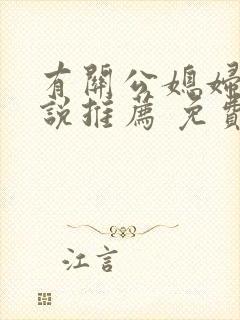 有關公媳婦
說推薦 免費
江言